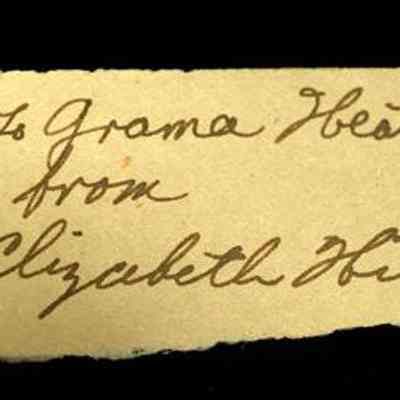 to Grama Hea
from
Elizabeth Hi